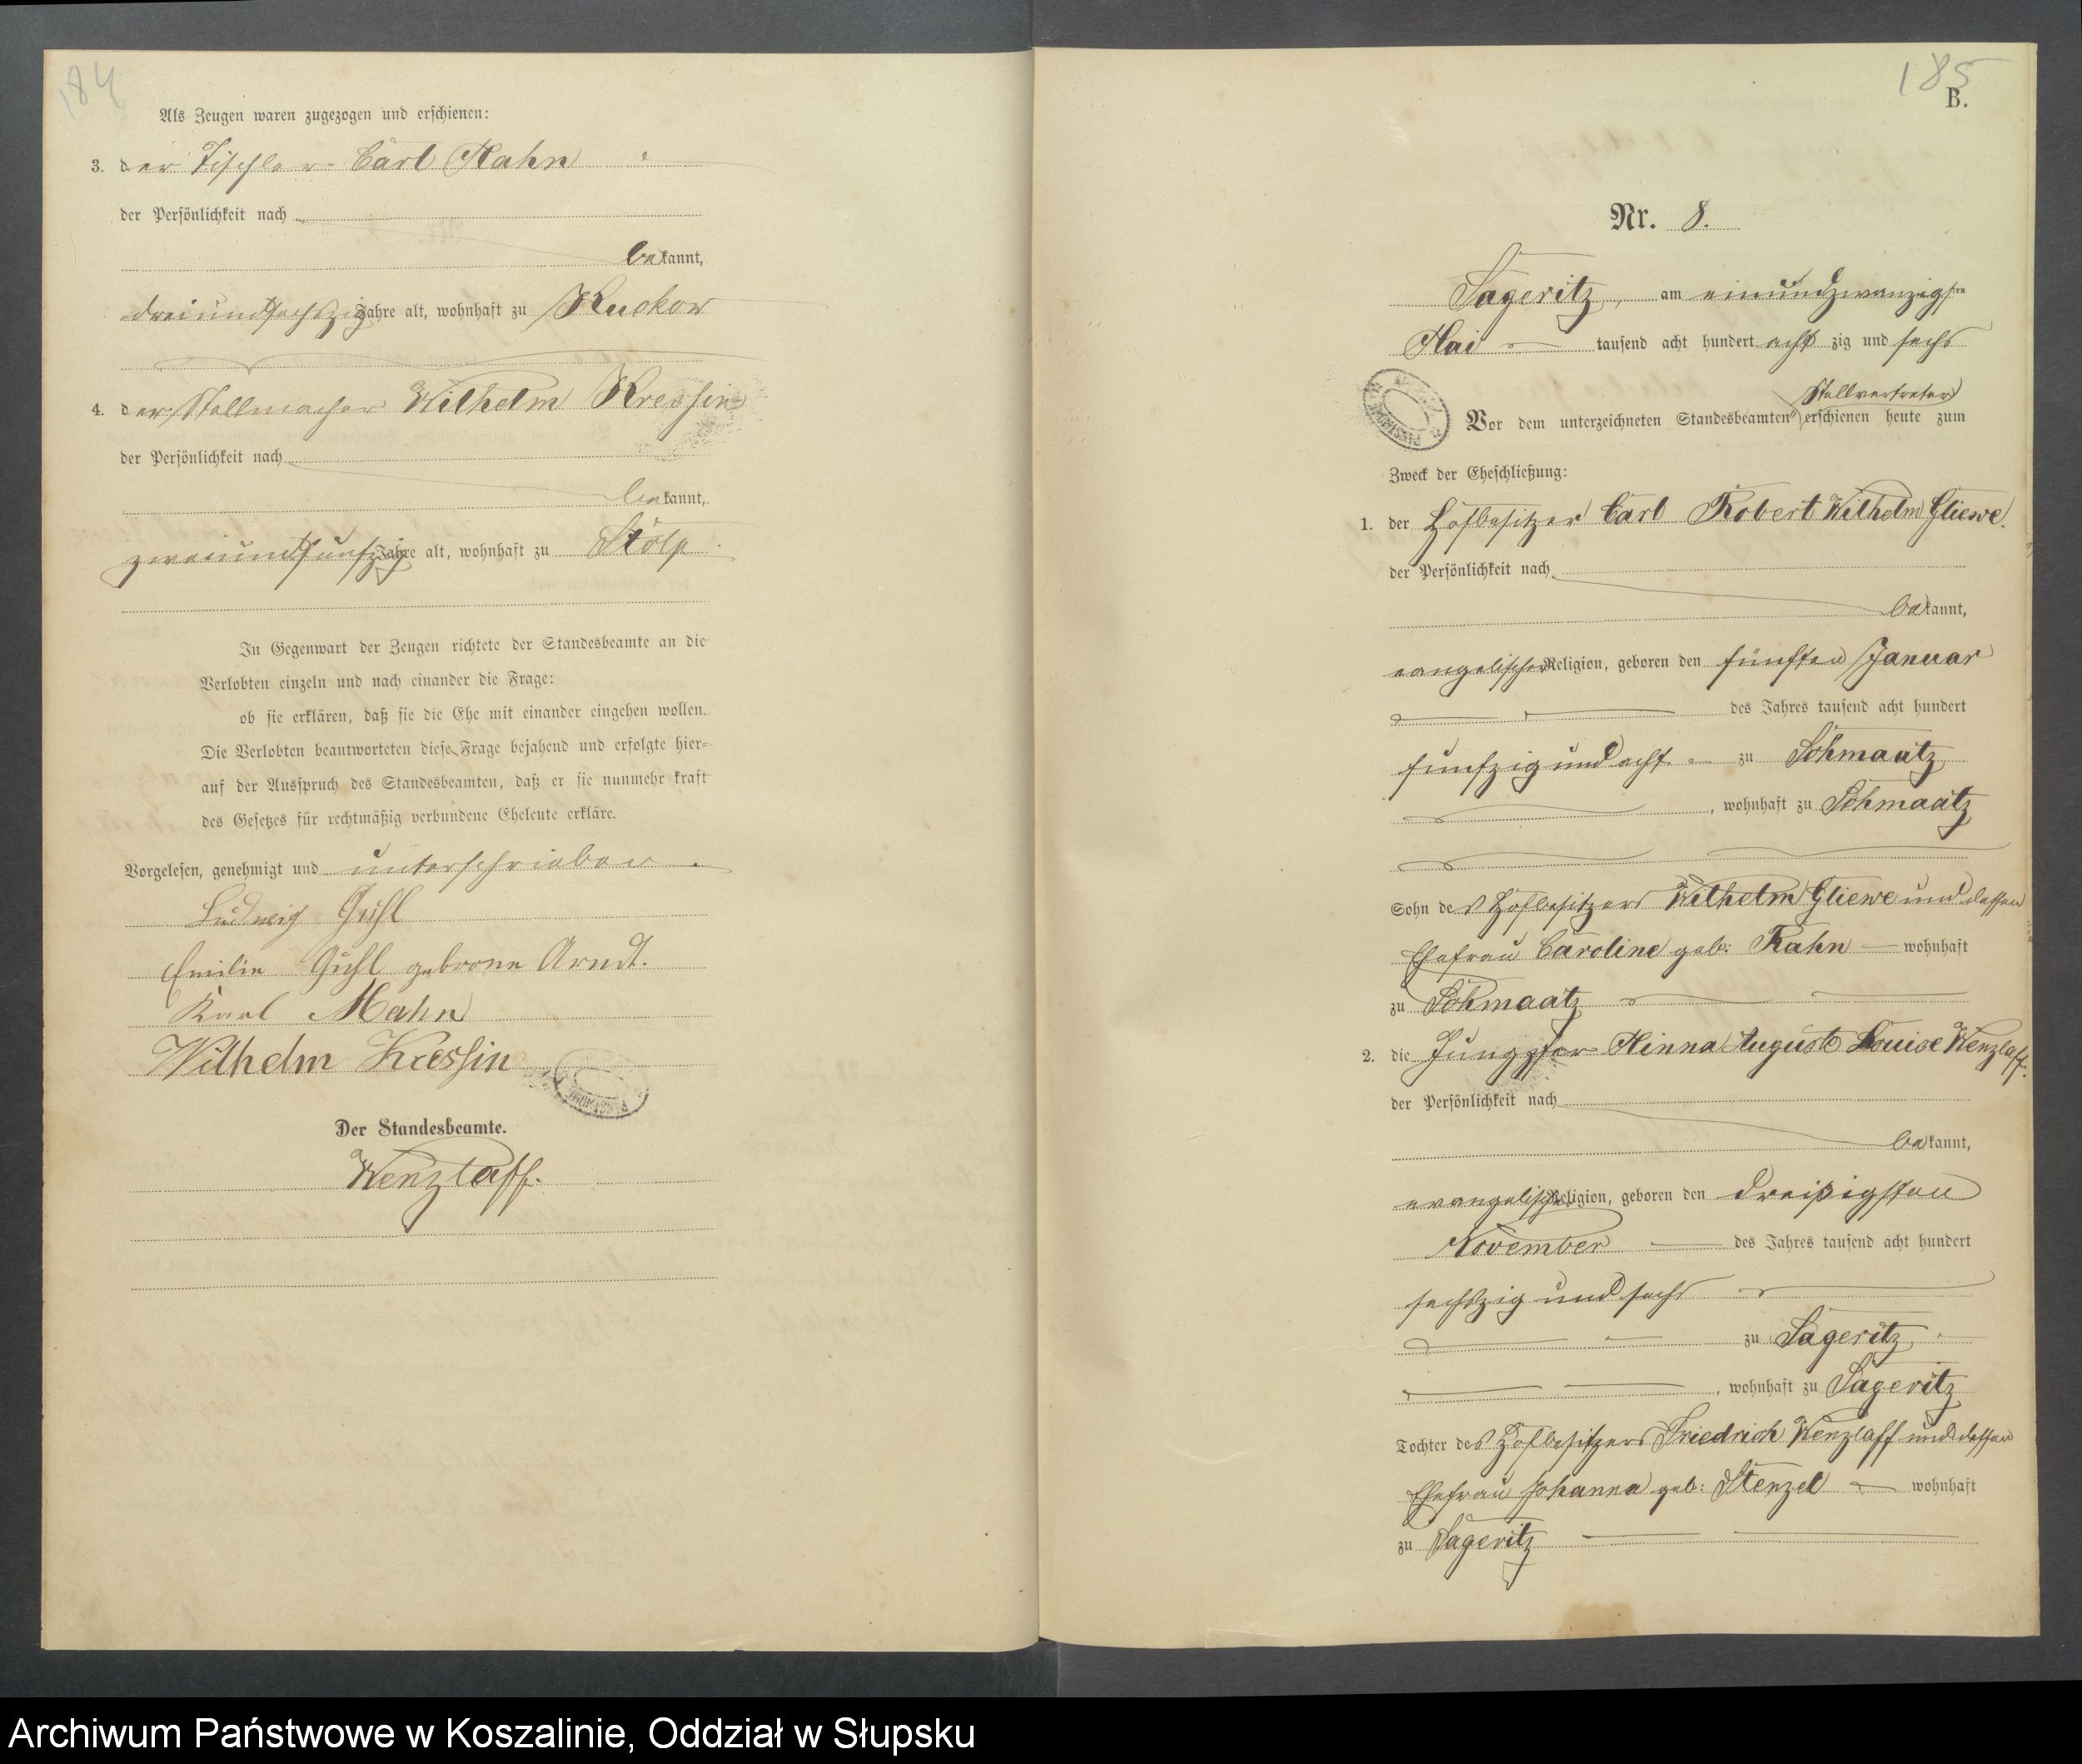 184
Als Zeugen waren zugezogen und erschienen:
3. der Tischler Carl Hahn
der Persönlichkeit nach
bekannt,
dreiundsechszig Jahre alt, wohnhaft zu Kuckow
4. der Stellmacher Wilhelm Kressin
der Persönlichkeit nach
bekannt,
zweiundfunfzig Jahre alt, wohnhaft zu Stolp
In Gegenwart der Zeugen richtete der Standesbeamte an die
Verlobten einzeln und nach einander die Frage:
ob sie erklären, daß sie die Ehe mit einander eingehen wollen.
Die Verlobten beantworteten diese Frage bejahend und erfolgte hier-
auf der Ausspruch des Standesbeamten, daß er sie nunmehr kraft
des Gesetzes für rechtmäßig verbundene Eheleute erkläre.
Vorgelesen, genehmigt und unterschrieben.
Ludwig Guhl
Emilie Guhl geborne Arndt.
Karl Hahn
Wilhelm Kressin
Der Standesbeamte.
Wenzlaff.
185
B.
Nr. 8.
Sageritz, am einundzwanzigsten
Mai tausend acht hundert acht zig und sechs
Stellvertreter
Vor dem unterzeichneten Standesbeamten erschienen heute zum
Zweck der Eheschließung:
1. der Hofbesitzer Carl Robert Wilhelm Gliewe
der Persönlichkeit nach
bekannt,
evangelischer Religion, geboren den fünften Januar
des Jahres tausend acht hundert
funfzig und acht zu Schmaatz
, wohnhaft zu Schmaatz
Sohn des Hofbesitzers Wilhelm Gliewe und dessen
Ehefrau Caroline geb: Rahn wohnhaft
zu Schmaatz
2. die Jungfer Minna Auguste Louise Wenzlaff.
der Persönlichkeit nach
bekannt,
evangelischer Religion, geboren den dreißigsten
November des Jahres tausend acht hundert
sechszig und sechs
zu Sageritz
, wohnhaft zu Sageritz
Tochter des Hofbesitzers Friedrich Wenzlaff und dessen
Ehefrau Johanna geb: Stenzel wohnhaft
zu Sageritz
Archiwum Państwowe w Koszalinie, Oddział w Słupsku